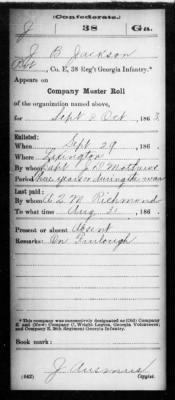 (Confederate.)
J 38 Ga.
J B Jackson
Pvt, Co. E, 38 Reg't Georgia Infantry.*
Appears on
Company Muster Roll
of the organization named above,
for Sept & Oct, 1863.
Enlisted:
When Sept 29, 186
Where Lexington
By whom Capt J D Mathews
Period three years or during the war
Last paid:
By whom A Q M Richmond
To what time Aug 31, 186
Present or absent Absent
Remarks: On Furlough
*This company was successively designated as (Old) Company E and (New) Company C, Wright Legion, Georgia Volunteers; and Company E, 38th Regiment Georgia Infantry.
Book mark:
(642) Copyist.